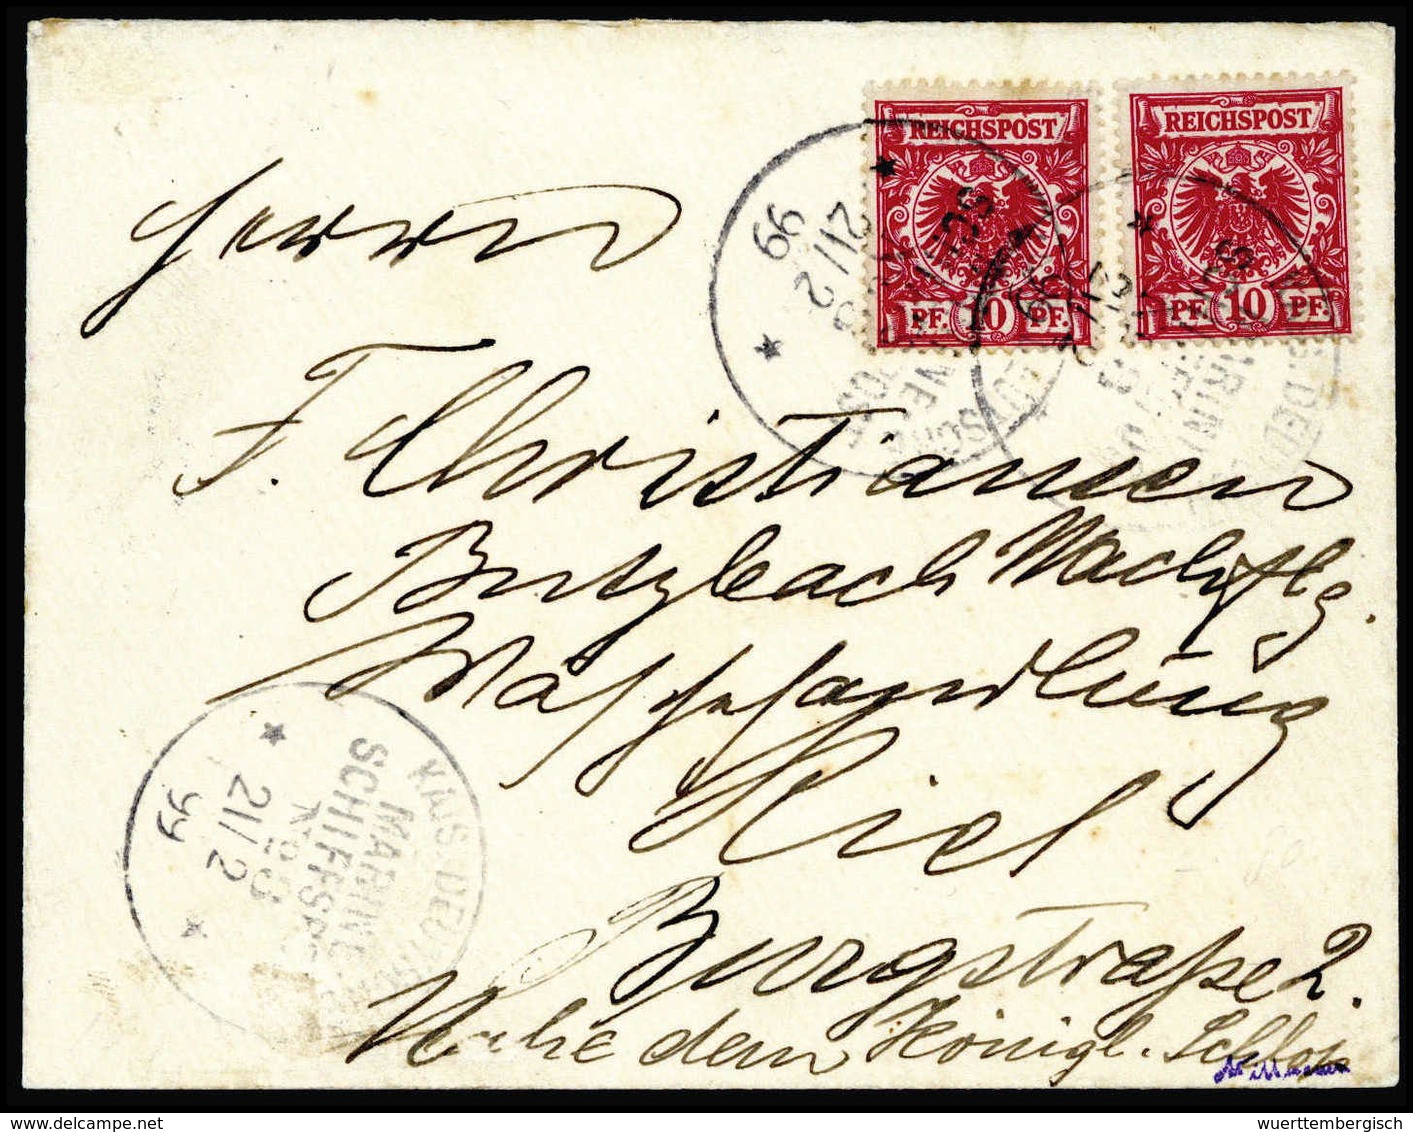 REICHSPOST
PF. 10 PF.
REICHSPOST
PF. 10 PF.
21/2
99
Herrn
F. Christiansen
Butzbach Nachflg.
Kiel
Burgstraße 2.
Nahe dem Königl. Schloß
KAIS. DEUTSCHE
MARINE
SCHIFFSPOST
No 83
21/2
99
delcampe.net
wuerttembergisch